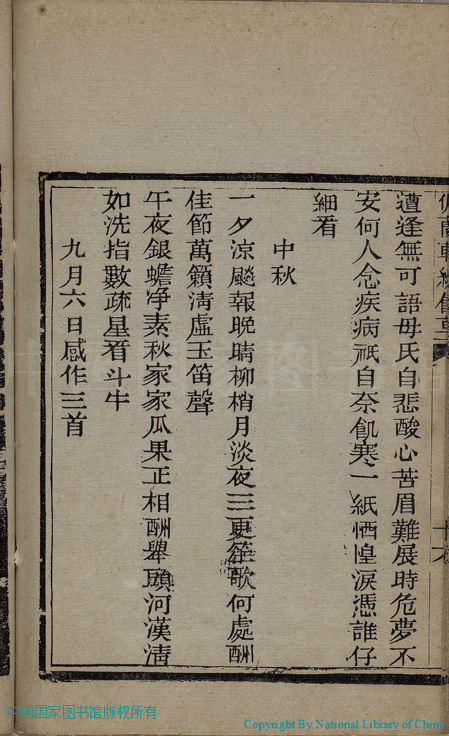 遭逢無可語毋氏自悲酸心苦眉難展時危夢不
安何人念疾病祇自奈飢寒一紙恓惶淚憑誰仔
細看
中秋
一夕涼飈報晚晴柳梢月淡夜三更筵歌何處酬
佳節萬籟清虛玉笛聲
午夜銀蟾净素秋家家瓜果正相酬舉頭河漢清
如洗指數疏星看斗牛
九月六日感作三首
中国国家图书馆版权所有
Copyright By National Library of China